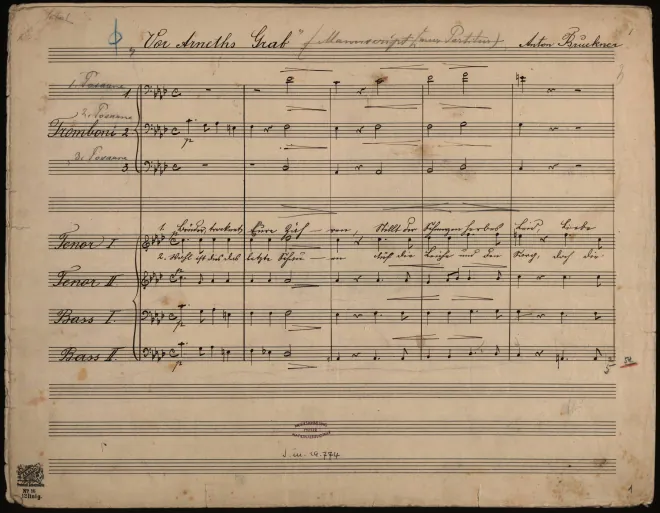 „Vor Arneths Grab" (Manuscript Partitur) Anton Bruckner
1. Posaune 1
2. Posaune
Tromboni 2
3. Posaune 3
1. Brüder, trocknet Eure Zäh - ren, Stillt der Schmerzen herbes Leid, Liebe
Tenor I
2. Wohl ist dies das letzte Schau - en durch die Leiche und den Sarg, doch die
Tenor II
Bass I.
Bass II.
54
S.m. 19.774
1